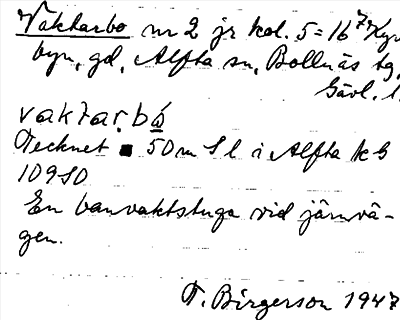 Vaktarbo nr 2 jr kol. 5 = 16 Kyr
byn, gd, Alfta sn, Bollnäs tg,
Gävl. l.
vaktarbó
Tecknet ■ 50 m S l i Alfta k G
109 SO
En banvaktstuga vid järnvä-
gen.
T. Birgerson 1947